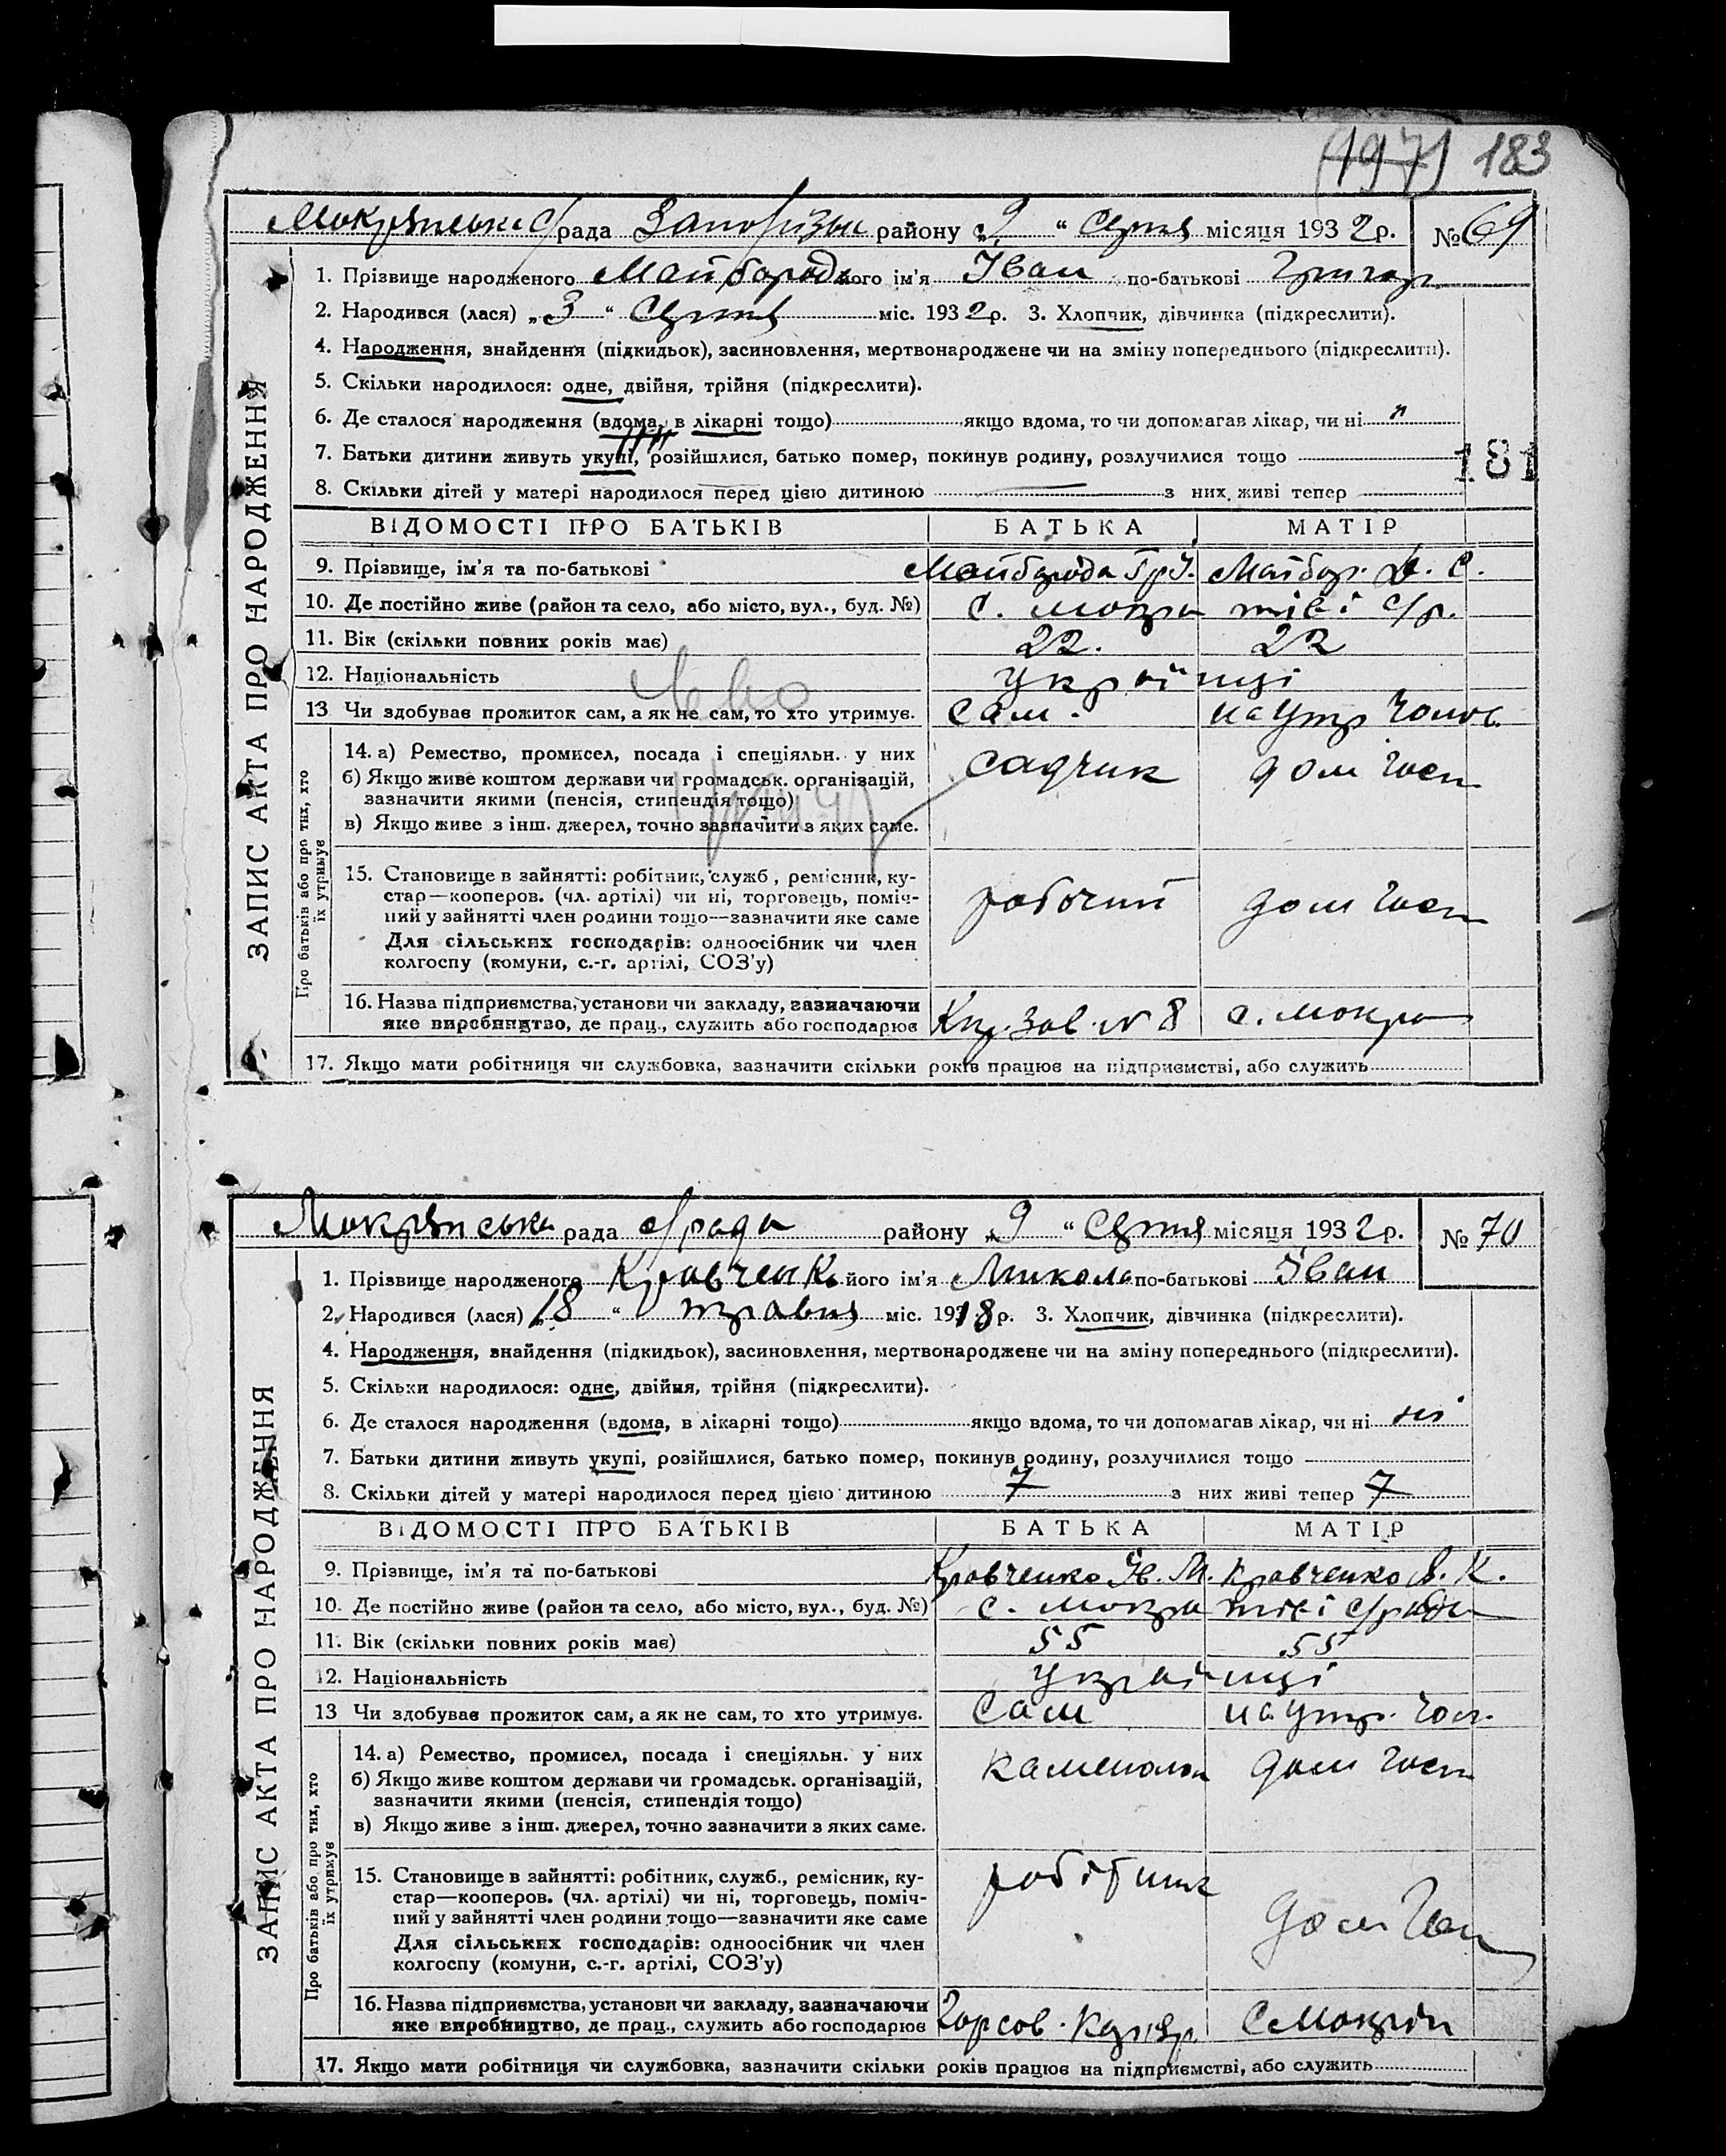 (197) 183
рада району „9 “ Серпня місяця 1932р. №69
ЗАПИС АКТА ПРО НАРОДЖЕННЯ
1. Прізвище народженого його ім'я Іван по-батькові Григор
2. Народився (лася) „3 “ Серпня міс. 1932р. 3. Хлопчик, дівчинка (підкреслити).
4. Народження, знайдення (підкидьок), засиновлення, мертвонароджене чи на зміну попереднього (підкреслити).
5. Скільки народилося: одне, двійня, трійня (підкреслити).
6. Де сталося народження (вдома, в лікарні тощо) якщо вдома, то чи допомагав лікар, чи ні
7. Батьки дитини живуть укупі, розійшлися, батько помер, покинув родину, розлучилися тощо
181
8. Скільки дітей у матері народилося перед цією дитиною — з них живі тепер
ВІДОМОСТІ ПРО БАТЬКІВ БАТЬКА МАТІР
9. Прізвище, ім'я та по-батькові Майборода Гр.І. Майбор. С.
10. Де постійно живе (район та село, або місто, вул., буд. №) с. Мокра с/р.
11. Вік (скільки повних років має) 22. 22
12. Національність українці
13 Чи здобував прожиток сам, а як не сам, то хто утримує. Сам. на утр чолов.
Про батьків або про тих, хто їх утримує
14. а) Ремество, промисел, посада і спеціяльн. у них садчик дом госп
б) Якщо живе коштом держави чи громадськ. організацій,
зазначити якими (пенсія, стипендія тощо)
в) Якщо живе з інш. джерел, точно зазначити з яких саме.
15. Становище в зайнятті: робітник, служб, ремісник, ку-
стар—кооперов. (чл. артілі) чи ні, торговець, поміч-
ний у зайнятті член родини тощо—зазначити яке саме робочий дом госп
Для сільських господарів: одноосібник чи член
колгоспу (комуни, с.-г. артілі, СОЗ'у)
16. Назва підприємства, установи чи закладу, зазначаючи
яке виробництво, де прац., служить або господарює Кир. Зав. № 8 с. Мокра
17. Якщо мати робітниця чи службовка, зазначити скільки років працює на підприємстві, або служить
Мокрянська рада с/рада району „9 “ Серпня місяця 1932р. № 70
ЗАПИС АКТА ПРО НАРОДЖЕННЯ
1. Прізвище народженого Кравченко його ім'я Микола по-батькові Іван
2. Народився (лася) „18 “ травня міс. 1918р. 3. Хлопчик, дівчинка (підкреслити).
4. Народження, знайдення (підкидьок), засиновлення, мертвонароджене чи на зміну попереднього (підкреслити).
5. Скільки народилося: одне, двійня, трійня (підкреслити).
6. Де сталося народження (вдома, в лікарні тощо) якщо вдома, то чи допомагав лікар, чи ні ні
7. Батьки дитини живуть укупі, розійшлися, батько помер, покинув родину, розлучилися тощо
8. Скільки дітей у матері народилося перед цією дитиною 7 з них живі тепер 7
ВІДОМОСТІ ПРО БАТЬКІВ БАТЬКА МАТІР
9. Прізвище, ім'я та по-батькові Кравченко Ів. М. Кравченко К.
10. Де постійно живе (район та село, або місто, вул., буд. №) с. Мокра с/рада
11. Вік (скільки повних років має) 55 55
12. Національність українці
13 Чи здобував прожиток сам, а як не сам, то хто утримує. Сам на утр. чол.
Про батьків або про тих, хто їх утримує
14. а) Ремество, промисел, посада і спеціяльн. у них каменолом дом госп
б) Якщо живе коштом держави чи громадськ. організацій,
зазначити якими (пенсія, стипендія тощо)
в) Якщо живе з інш. джерел, точно зазначити з яких саме.
15. Становище в зайнятті: робітник, служб., ремісник, ку-
стар—кооперов. (чл. артілі) чи ні, торговець, поміч-
ний у зайнятті член родини тощо—зазначити яке саме робітник дом Госп
Для сільських господарів: одноосібник чи член
колгоспу (комуни, с.-г. артілі, СОЗ'у)
16. Назва підприємства, установи чи закладу, зазначаючи
яке виробництво, де прац., служить або господарює
17. Якщо мати робітниця чи службовка, зазначити скільки років працює на підприємстві, або служить